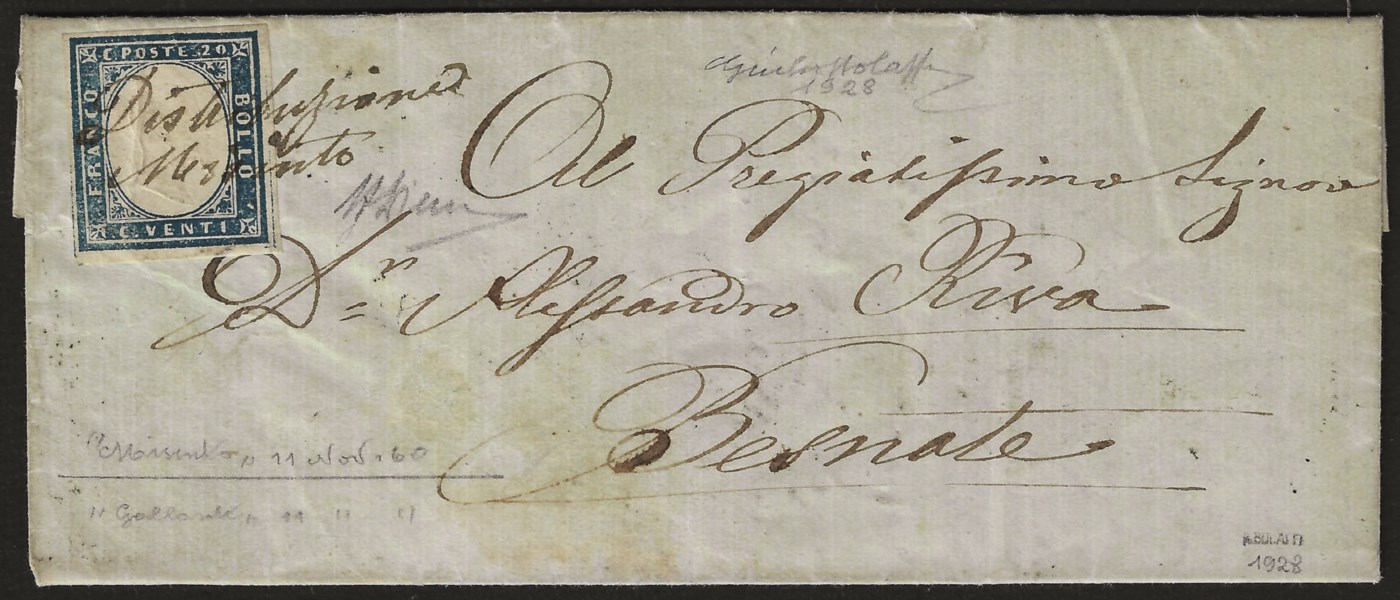 C. POSTE 20
FRANCO
BOLLO
C. VENTI
Distribuzione di
1928
Al Pregiatissimo Signor
Dn = Alessandro Riva
Besnate
11 Nov. 60
" Gallarate " 11 " "
A. BOLAFFI
1928